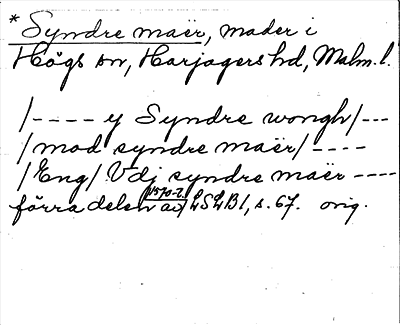 * Syndre maër, mader i
Högs sn, Harjagers hd, Malm. l.
/---- y Syndre wongh/---
/mod syndre maër/----
/Eng/ Vdj syndre maër ----
förra delen av LSLB1, s. 67. orig.